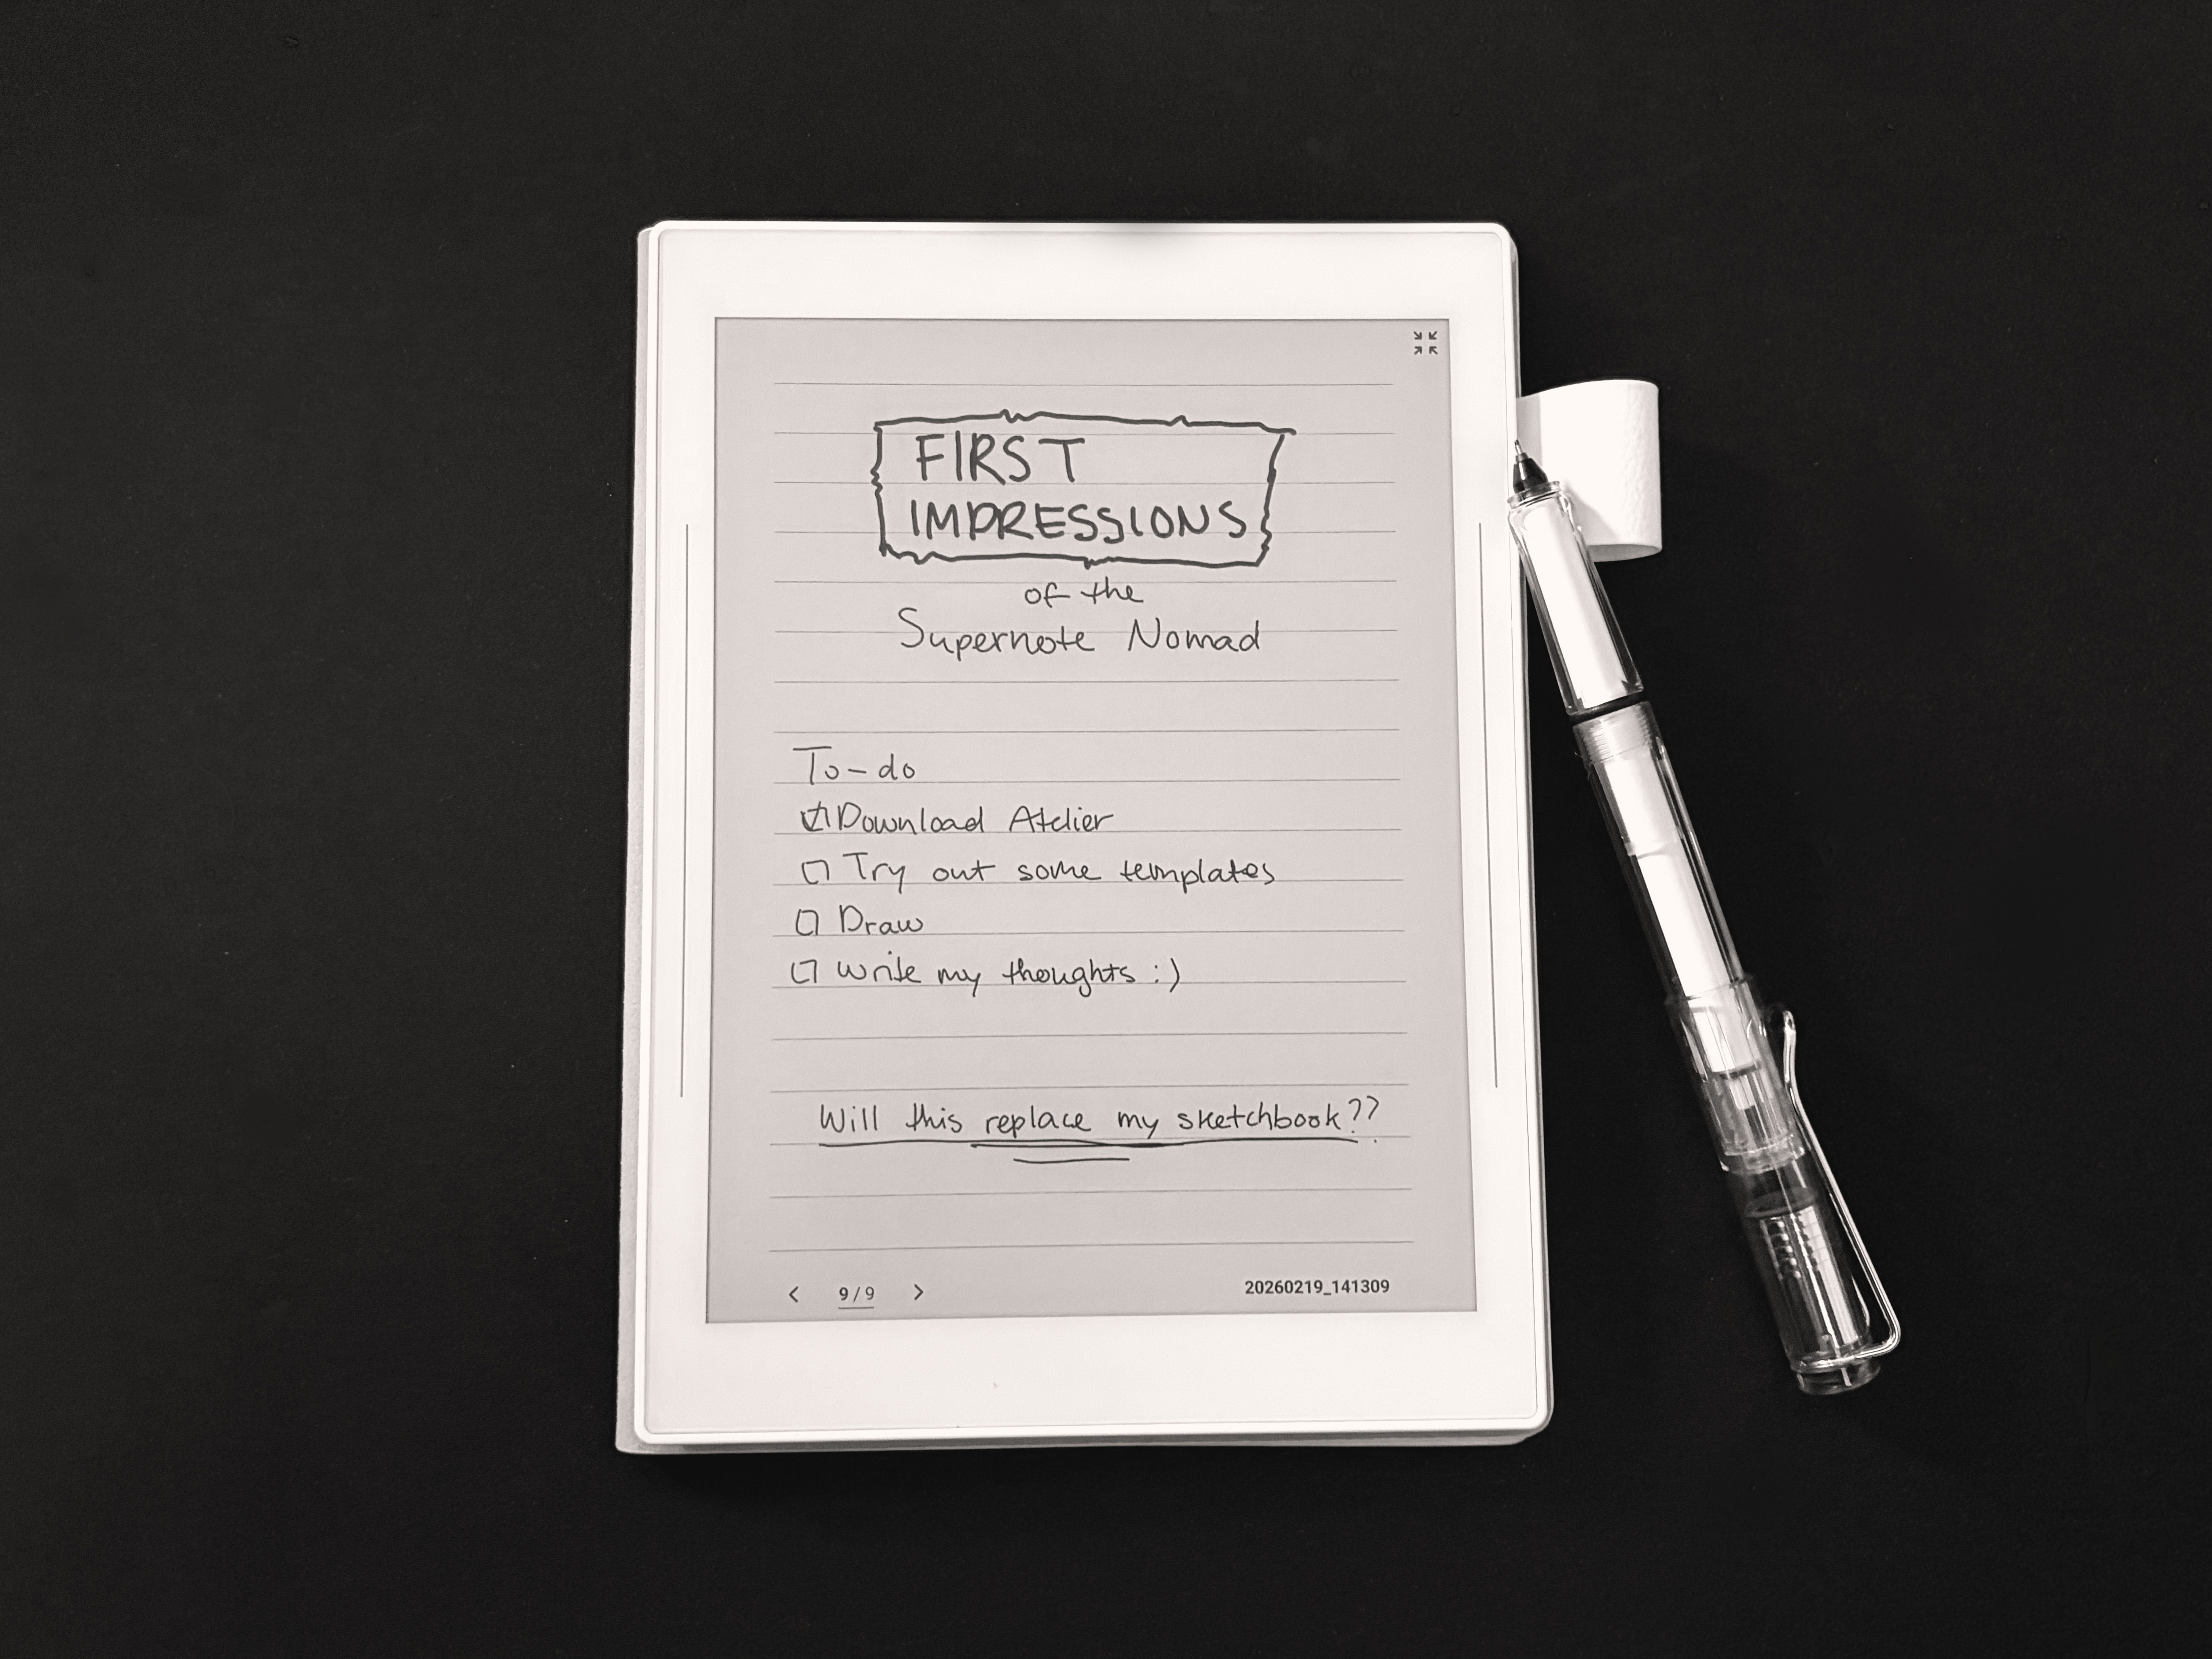 FIRST
IMPRESSIONS
of the
Supernote Nomad
To-do
☑ Download Atelier
☐ Try out some templates
☐ Draw
☐ Write my thoughts :)
Will this replace my sketchbook??
< 9/9 > 20260219_141309